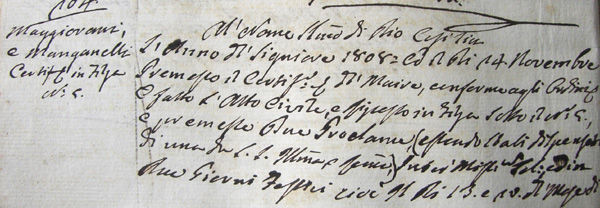 104
Maggiovani,
e Manganelli
Certif. in Filza
N. 5.
Al Nome SSmo di Dio
L'Anno D'Signiore 1808 = ed il dì 14 Novembre
Premesso il Certif. D' Maire, conforme agli Ordini
e fatto L'Atto Civile, e in Filza Sotto il N. 5.
e premesse Due Proclame, (essendo Stati dispensati
di una da S. S. Illma e
Due Giorni Festivi cioè Il Dì 13. e D' Mese di